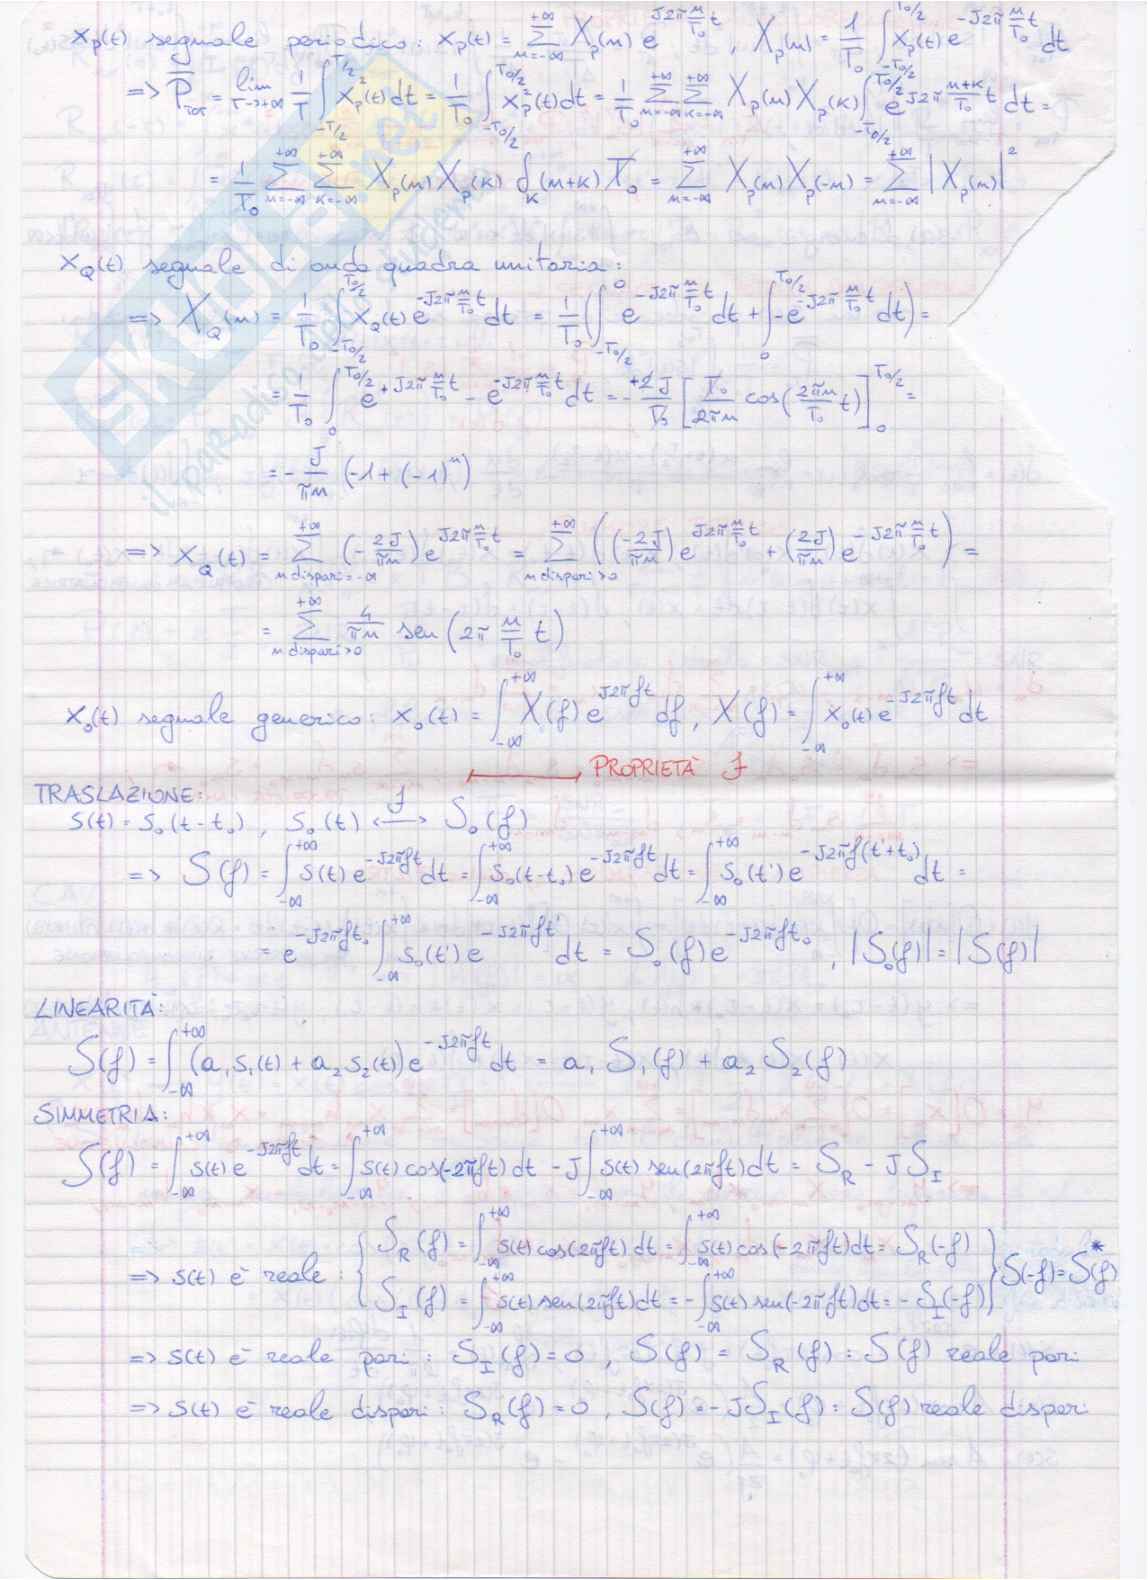 x_p(t) segnale periodico: x_p(t) = Σ_{n=-∞}^{+∞} X_p(n) e^{J2π n/T₀ t} , X_p(n) = 1/T₀ ∫_{-T₀/2}^{T₀/2} x_p(t) e^{-J2π n/T₀ t} dt
=> P̅_TOT = lim_{T→+∞} 1/T ∫_{-T/2}^{T/2} x_p²(t) dt = 1/T₀ ∫_{-T₀/2}^{T₀/2} x_p²(t) dt = 1/T₀ Σ_{n=-∞}^{+∞} Σ_{k=-∞}^{+∞} X_p(n) X_p(k) ∫_{-T₀/2}^{T₀/2} e^{J2π (n+k)/T₀ t} dt =
= 1/T₀ Σ_{n=-∞}^{+∞} Σ_{k=-∞}^{+∞} X_p(n) X_p(k) δ_k(n+k) T₀ = Σ_{n=-∞}^{+∞} X_p(n) X_p(-n) = Σ_{n=-∞}^{+∞} |X_p(n)|²
x_Q(t) segnale di onda quadra unitaria:
=> X_Q(n) = 1/T₀ ∫_{-T₀/2}^{T₀/2} x_Q(t) e^{-J2π n/T₀ t} dt = 1/T₀ (∫_{-T₀/2}^{0} e^{-J2π n/T₀ t} dt + ∫_{0}^{T₀/2} -e^{-J2π n/T₀ t} dt) =
= 1/T₀ ∫_{0}^{T₀/2} e^{+J2π n/T₀ t} - e^{-J2π n/T₀ t} dt = -+2J/T₀ [T₀/2πn cos(2πn/T₀ t)]_{0}^{T₀/2} =
= - J/πn (-1 + (-1)^n)
=> x_Q(t) = Σ_{n dispari=-∞}^{+∞} (- 2J/πn) e^{J2π n/T₀ t} = Σ_{n dispari>0}^{+∞} ((-2J/πn) e^{J2π n/T₀ t} + (2J/πn) e^{-J2π n/T₀ t}) =
= Σ_{n dispari>0}^{+∞} 4/πn sen(2π n/T₀ t)
x₀(t) segnale generico: x₀(t) = ∫_{-∞}^{+∞} X(f) e^{J2πft} df , X(f) = ∫_{-∞}^{+∞} x₀(t) e^{-J2πft} dt
PROPRIETÀ F
TRASLAZIONE:
s(t) = s₀(t-t₀) , s₀(t) <-F-> S₀(f)
=> S(f) = ∫_{-∞}^{+∞} s(t) e^{-J2πft} dt = ∫_{-∞}^{+∞} s₀(t-t₀) e^{-J2πft} dt = ∫_{-∞}^{+∞} s₀(t') e^{-J2πf(t'+t₀)} dt =
= e^{-J2πft₀} ∫_{-∞}^{+∞} s₀(t') e^{-J2πft'} dt = S₀(f) e^{-J2πft₀} , |S₀(f)| = |S(f)|
LINEARITÀ:
S(f) = ∫_{-∞}^{+∞} (a₁s₁(t) + a₂s₂(t)) e^{-J2πft} dt = a₁ S₁(f) + a₂ S₂(f)
SIMMETRIA:
S(f) = ∫_{-∞}^{+∞} s(t) e^{-J2πft} dt = ∫_{-∞}^{+∞} s(t) cos(-2πft) dt - J∫_{-∞}^{+∞} s(t) sen(2πft) dt = S_R - J S_I
=> s(t) è reale : { S_R(f) = ∫_{-∞}^{+∞} s(t) cos(2πft) dt = ∫_{-∞}^{+∞} s(t) cos(-2πft) dt = S_R(-f)
S_I(f) = ∫_{-∞}^{+∞} s(t) sen(2πft) dt = -∫_{-∞}^{+∞} s(t) sen(-2πft) dt = - S_I(-f) } S(-f) = S*(f)
=> s(t) è reale pari : S_I(f) = 0 , S(f) = S_R(f) : S(f) reale pari
=> s(t) è reale dispari : S_R(f) = 0 , S(f) = -J S_I(f) : S(f) reale dispari